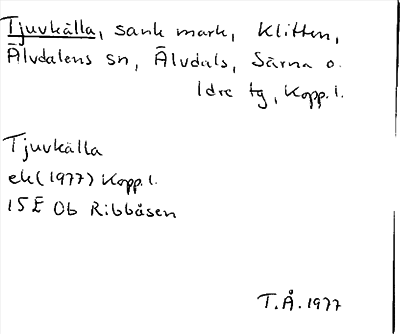 Tjuvkälla, sank mark, Klitten,
Älvdalens sn, Älvdals, Särna o.
Idre tg, Kopp. l.
Tjuvkälla
ek (1977) Kopp. l.
15E 0b Ribbåsen
T.Å. 1977